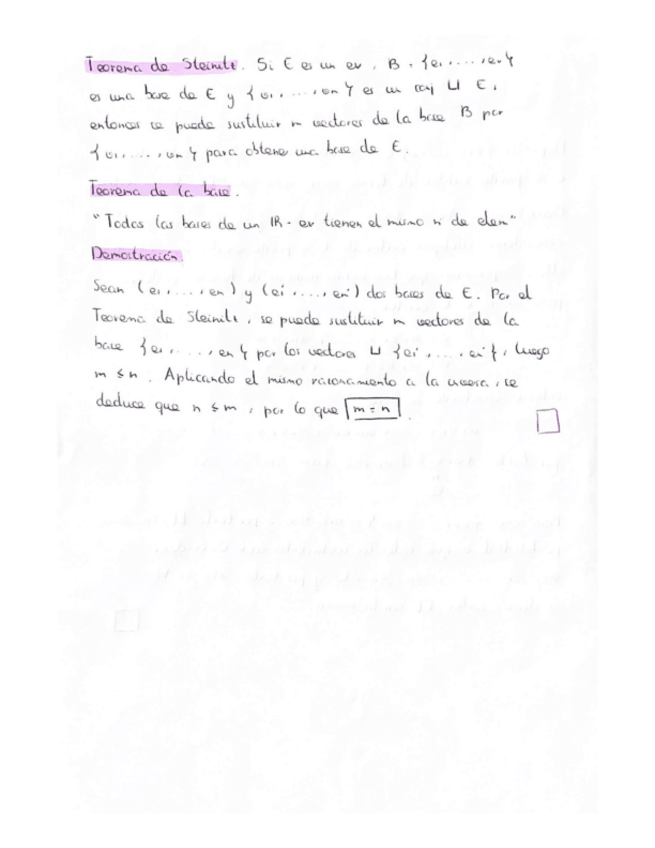 Teorema de Steinitz. Si E es un ev, B = {e₁, ..., en}
es una base de E y {v₁, ..., vm} es un conj LI E,
entonces se puede sustituir m vectores de la base B por
{v₁, ..., vm} para obtener una base de E.
Teorema de la base.
"Todas las bases de un IR-ev tienen el mismo nº de elem"
Demostración.
Sean (e₁, ..., en) y (e₁', ..., em') dos bases de E. Por el
Teorema de Steinitz, se puede sustituir m vectores de la
base {e₁, ..., en} por los vectores LI {e₁', ..., em'}, luego
m ≤ n. Aplicando el mismo razonamiento a la inversa, se
deduce que n ≤ m, por lo que m = n.